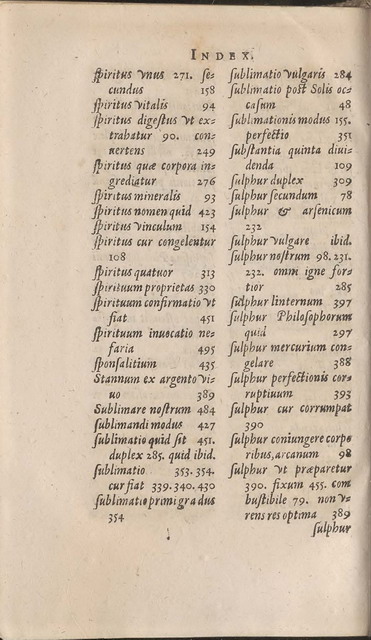 INDEX.
ſpiritus vnus 271. ſe-
cundus 158
ſpiritus vitalis 94
ſpiritus digeſtus vt ex-
trahatur 90. con-
uertens 249
ſpiritus quæ corpora in-
grediatur 276
ſpiritus mineralis 93
ſpiritus nomen quid 423
ſpiritus vinculum 154
ſpiritus cur congelentur
108
ſpiritus quatuor 313
ſpirituum proprietas 330
ſpirituum confirmatio vt
fiat 451
ſpirituum inuocatio ne-
faria 495
ſponſalitium 435
Stannum ex argento vi-
uo 389
Sublimare noſtrum 484
ſublimandi modus 427
ſublimatio quid ſit 451.
duplex 285. quid ibid.
ſublimatio 353.354.
cur fiat 339.340.430
ſublimatio primi gradus
354
ſublimatio vulgaris 284
ſublimatio poſt Solis oc-
caſum 48
ſublimationis modus 155.
perfectio 351
ſubſtantia quinta diui-
denda 109
ſulphur duplex 309
ſulphur ſecundum 78
ſulphur & arſenicum
232
ſulphur vulgare ibid.
ſulphur noſtrum 98.231.
232. omni igne for-
tior 285
ſulphur linternum 397
ſulphur Philoſophorum
quid 297
ſulphur mercurium con-
gelare 388
ſulphur perfectionis cor-
ruptiuum 393
ſulphur cur corrumpat
390
ſulphur coniungere corpo
ribus, arcanum 98
ſulphur vt præparetur
390. fixum 455. com
buſtibile 79. non v-
rens res optima 389
ſulphur